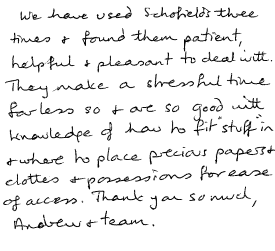 We have used Schofields three
times & found them patient,
helpful & pleasant to deal with.
They make a stressful time
far less so & are so good with
knowledge of how to fit "stuff" in
& where to place precious papers &
clothes & possessions for ease
of access. Thank you so much,
Andrew & team.